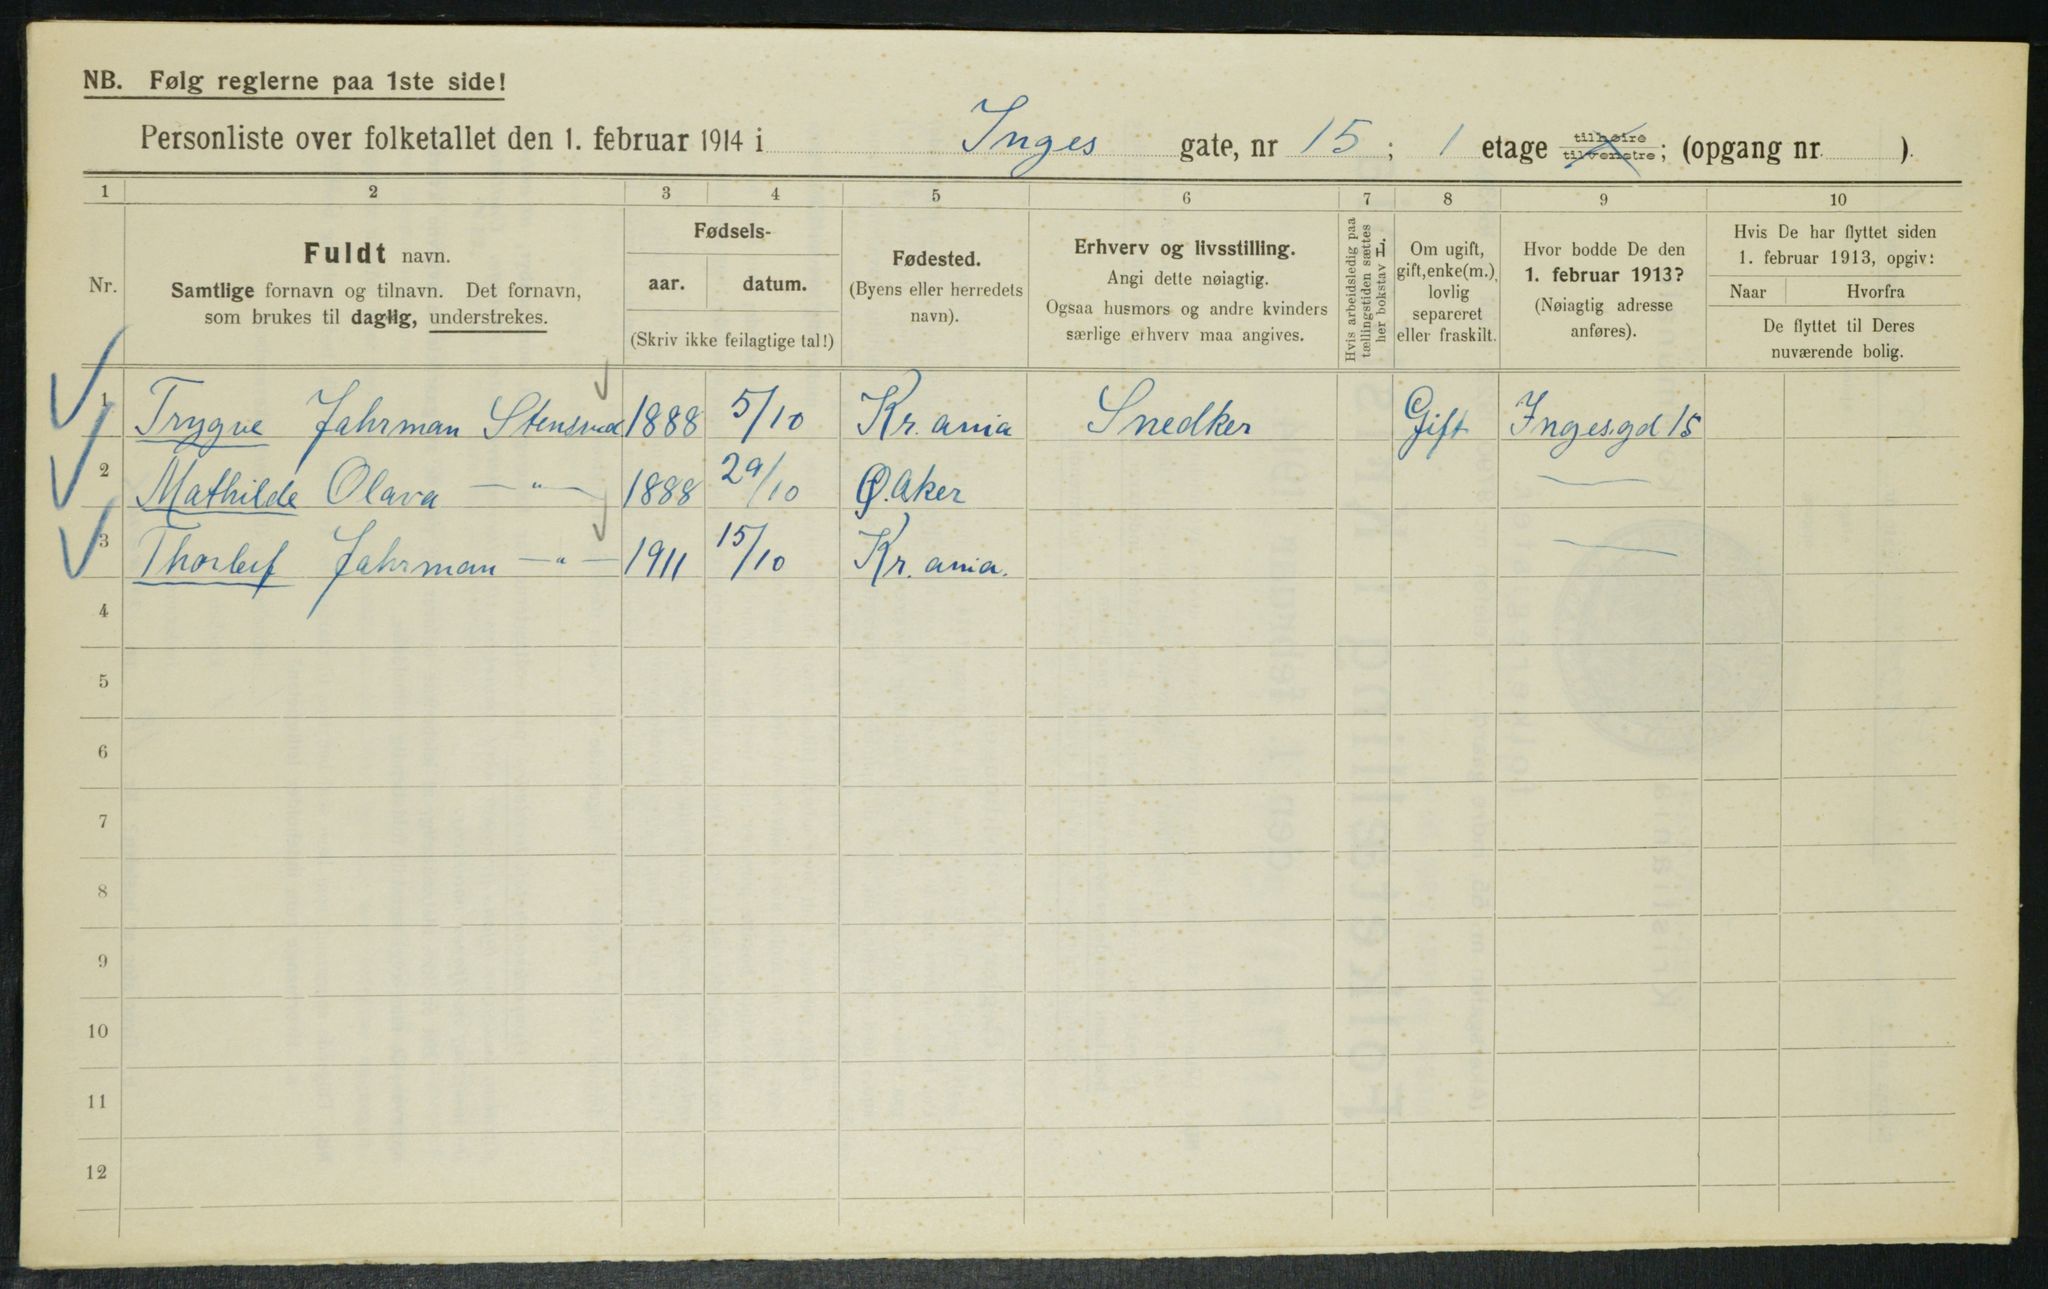 NB. Følg reglerne paa 1ste side!
Personliste over folketallet den 1. februar 1914 i Inges gate, nr 15 ; 1 etage tilhøire tilvenstre ; (opgang nr. ).
1 2 3 4 5 6 7 8 9 10
Nr.
Fuldt navn.
Samtlige fornavn og tilnavn. Det fornavn,
som brukes til daglig, understrekes.
Fødsels-
aar. datum.
(Skriv ikke feilagtige tal!)
Fødested.
(Byens eller herredets
navn).
Erhverv og livsstilling.
Angi dette nøiagtig.
Ogsaa husmors og andre kvinders
særlige erhverv maa angives.
Hvis arbeidsledig paa
tællingstiden sættes
her bokstav L.
Om ugift,
gift, enke(m.),
lovlig
separeret
eller fraskilt.
Hvor bodde De den
1. februar 1913?
(Nøiagtig adresse
anføres).
Hvis De har flyttet siden
1. februar 1913, opgiv:
Naar Hvorfra
De flyttet til Deres
nuværende bolig.
1 Trygve Jahrman Stensrud 1888 5/10 Kr. ania Snedker Gift Ingesgd 15
2 Mathilde Olava — " — 1888 29/10 Ø. Aker —
3 Thorleif Jahrman — " — 1911 15/10 Kr. ania. —
4
5
6
7
8
9
10
11
12